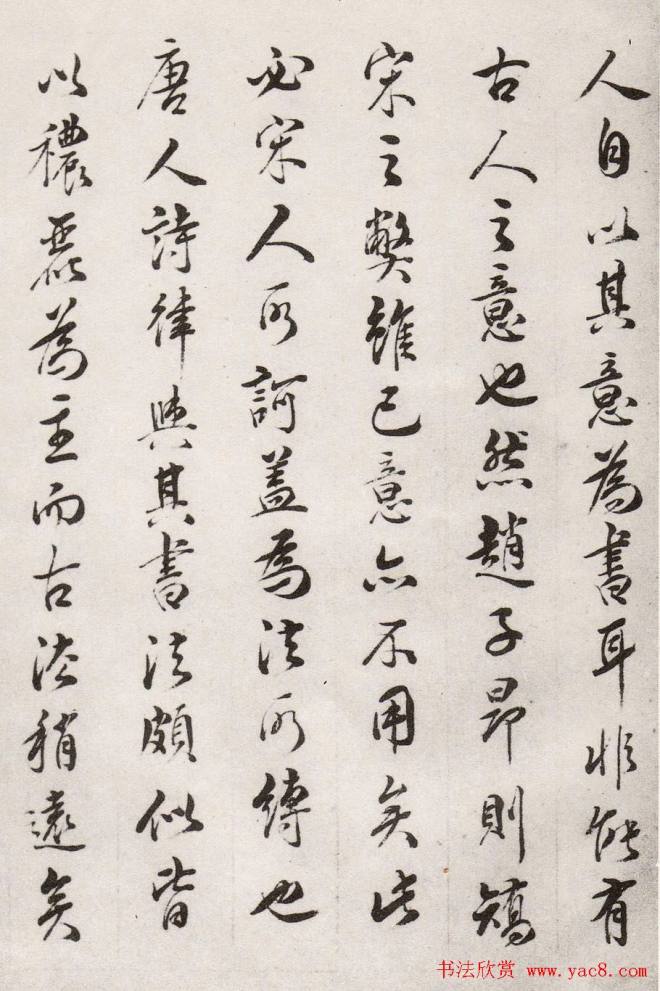 人自以其意為書耳非能有
古人之意也然趙子昂則矯
宋之弊雖己意亦不用矣此
必宋人所訶蓋為法所縛也
唐人詩律與其書法頗似皆
以穠麗為主而古法稍遠矣
书法欣赏 www.yac8.com